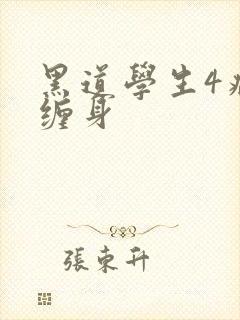 黑道學生4
缠身
張東升